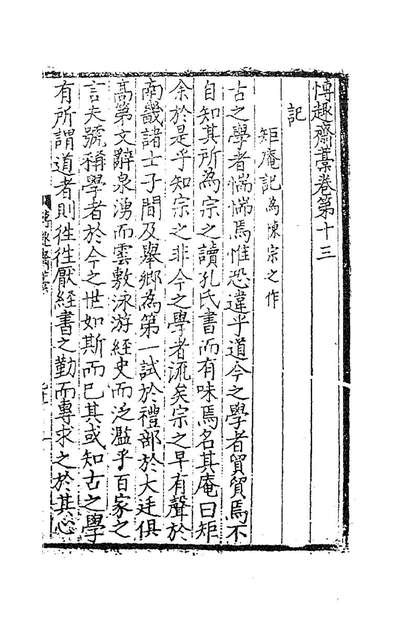 博趣齋藁卷第十三
記
矩庵記為陳宗之作
古之學者惴惴焉惟恐違乎道今之學者貿貿焉不
自知其所為宗之讀孔氏書而有味焉名其庵曰矩
余於是乎知宗之非今之學者流矣宗之早有聲於
南畿諸士子間及舉鄉為第一試於禮部於大廷俱
高第文辭泉湧而雲敷泳游經史而泛濫乎百家之
言夫號稱學者於今之世如斯而已其或知古之學
有所謂道者則徃徃厭經書之勤而專求之於其心